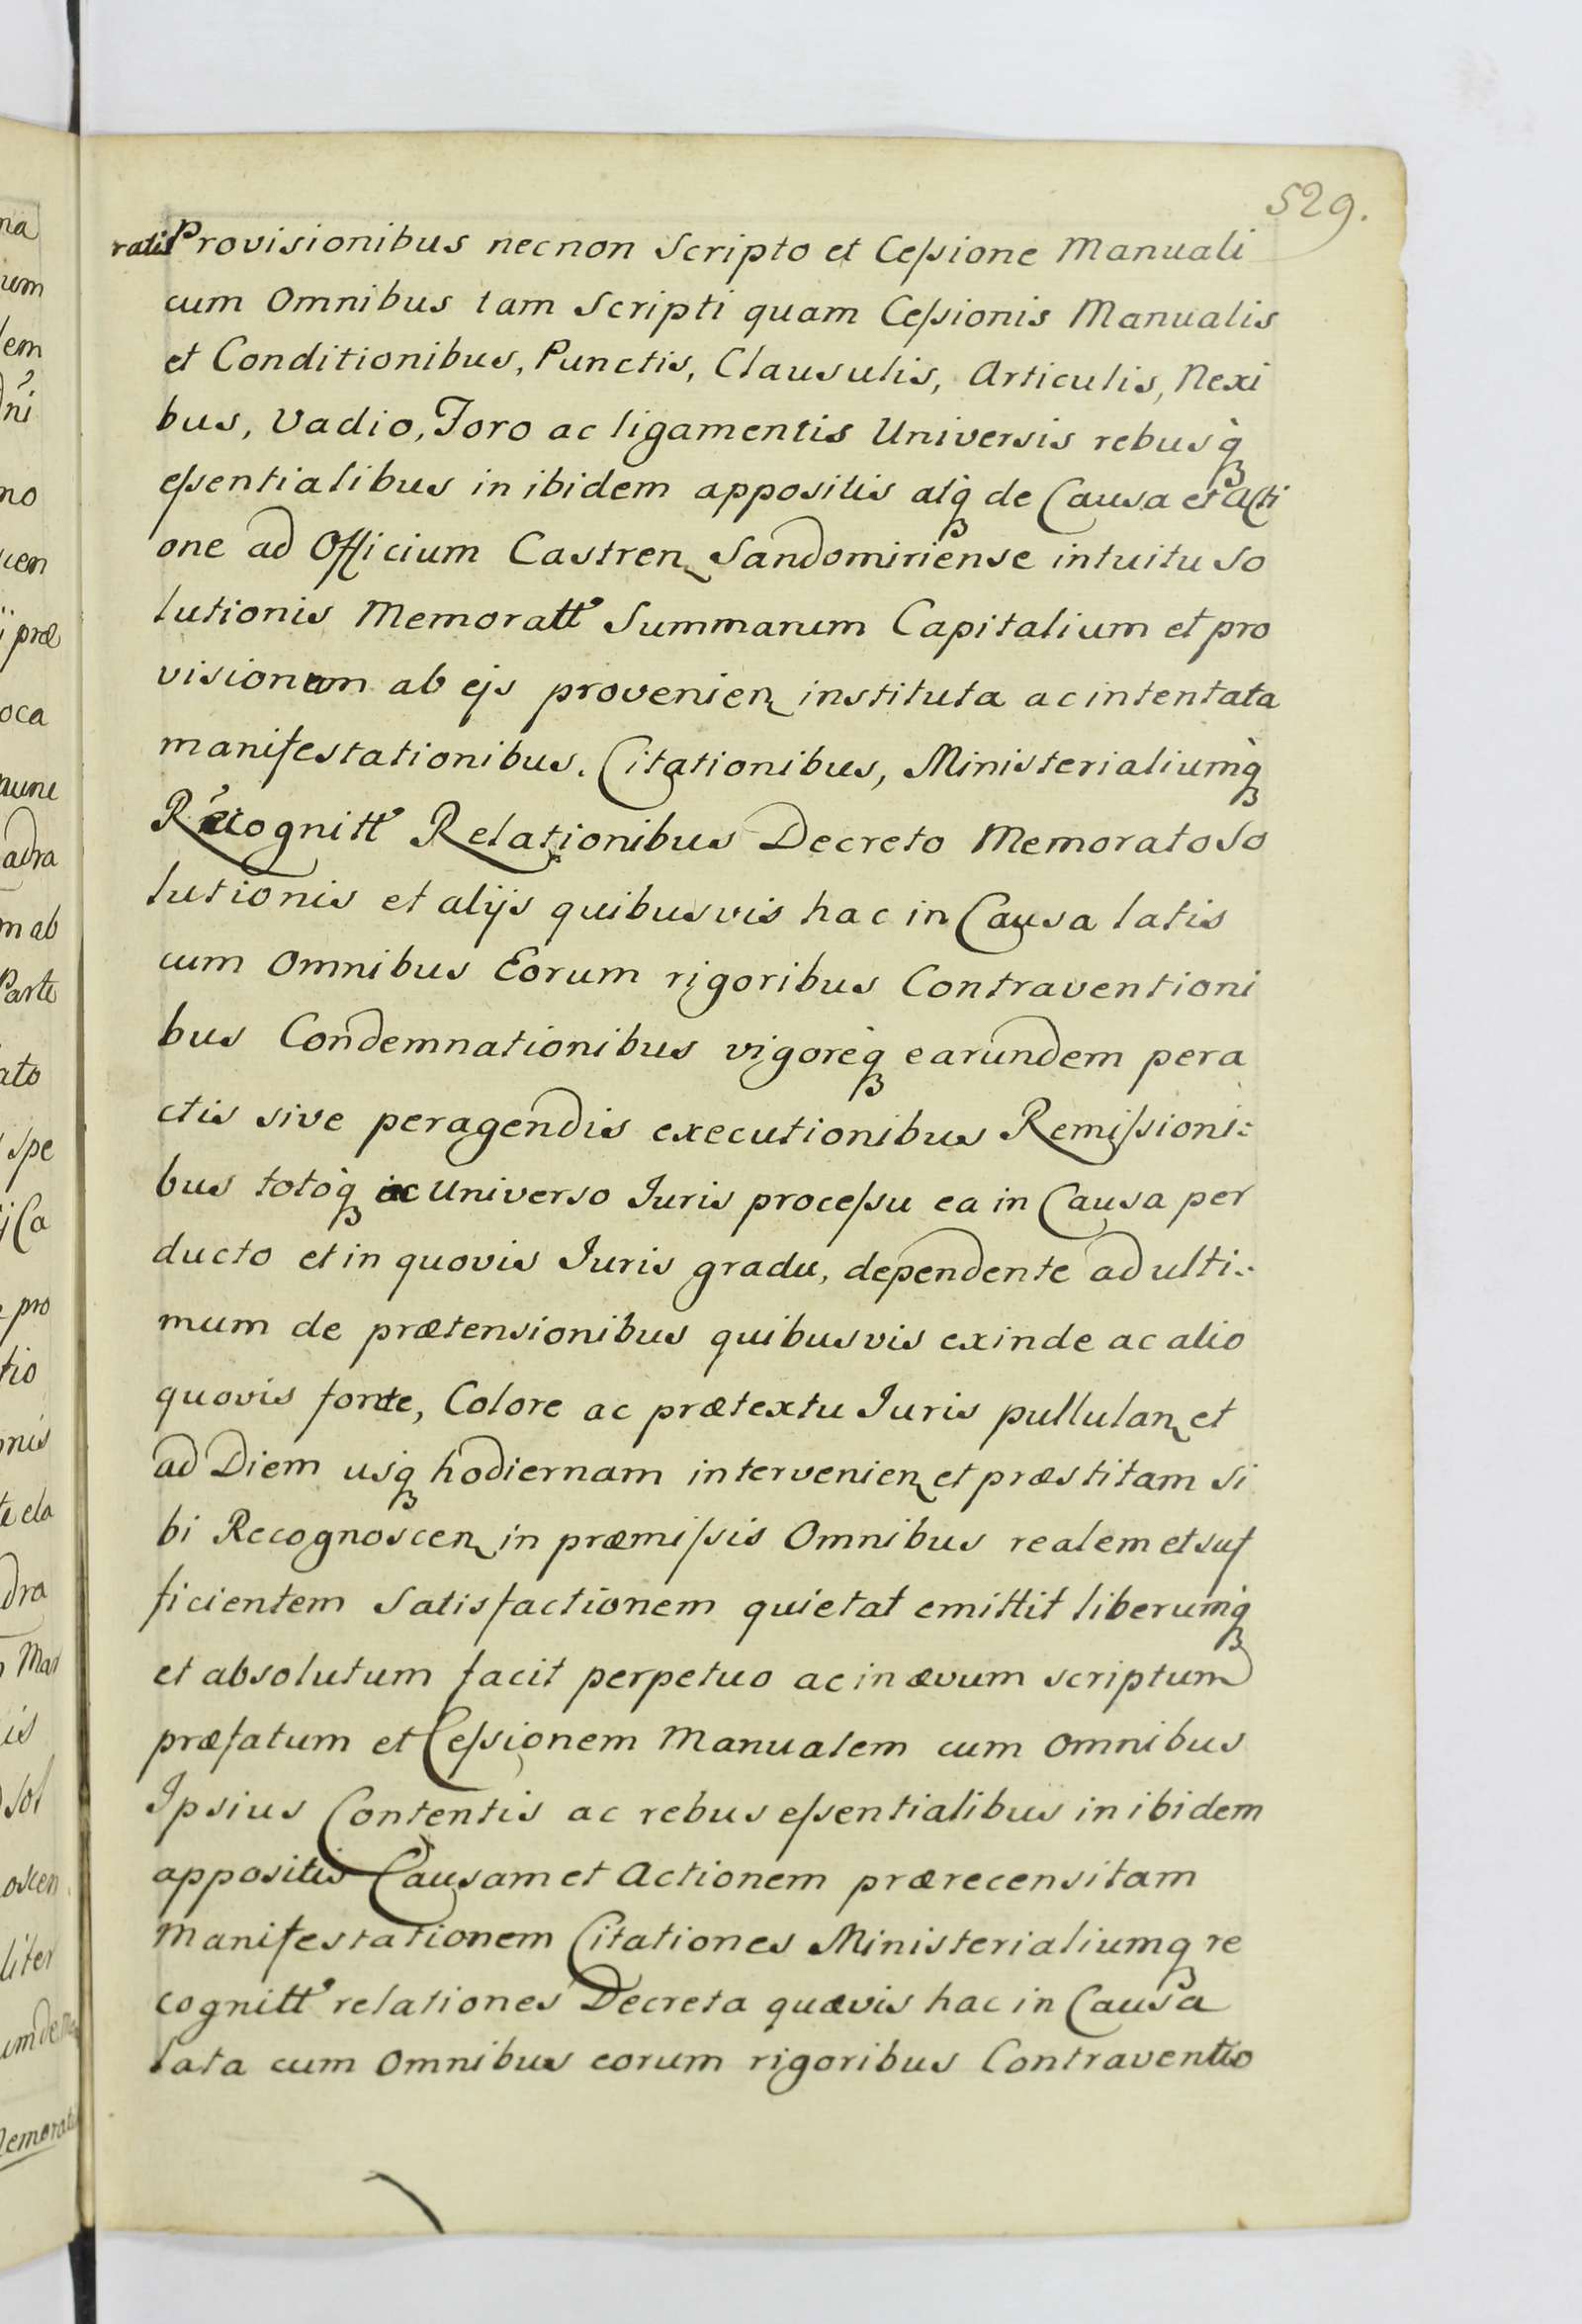 529.
ratis Provisionibus necnon Scripto et Ceſsione Manuali
cum Omnibus tam Scripti quam Ceſsionis Manualis
et Conditionibus, Punctis, Clausulis, Articulis, Nexi
bus, Vadio, Foro ac ligamentis Universis rebusq̀
eſsentialibus in ibidem appositis atq̀ de Causa et Acti
one ad Officium Castren Sandomiriense intuitu So
lutionis Memoratt Summarum Capitalium et pro
visionum ab ejs provenien instituta ac intentata
manifestationibus. Citationibus, Ministerialiumq̀
Recognitt Relationibus Decreto Memorato So
lutionis et alijs quibusvis hac in Causa latis
cum Omnibus Eorum rigoribus Contraventioni
bus Condemnationibus vigoreq̀ earundem pera
ctis sive peragendis executionibus Remiſsioni:
bus totoq̀ ac Universo Iuris proceſsu ea in Causa per
ducto et in quovis Iuris gradu, dependente ad ulti:
mum de prætensionibus quibusvis exinde ac alio
quovis fonte, Colore ac prætextu Iuris pullulan et
ad Diem usq hodiernam intervenien et præstitam si
bi Recognoscen in præmiſsis Omnibus realem et suf
ficientem Satisfactionem quietat emittit liberumq̀
et absolutum facit perpetuo ac in ævum scriptum
præfatum et Ceſsionem Manualem cum Omnibus
Ipsius Contentis ac rebus eſsentialibus in ibidem
appositis Causam et Actionem prærecensitam
Manifestationem Citationes Ministerialiumq re
cognitt relationes Decreta quævis hac in Causa
lata cum Omnibus eorum rigoribus Contraventio